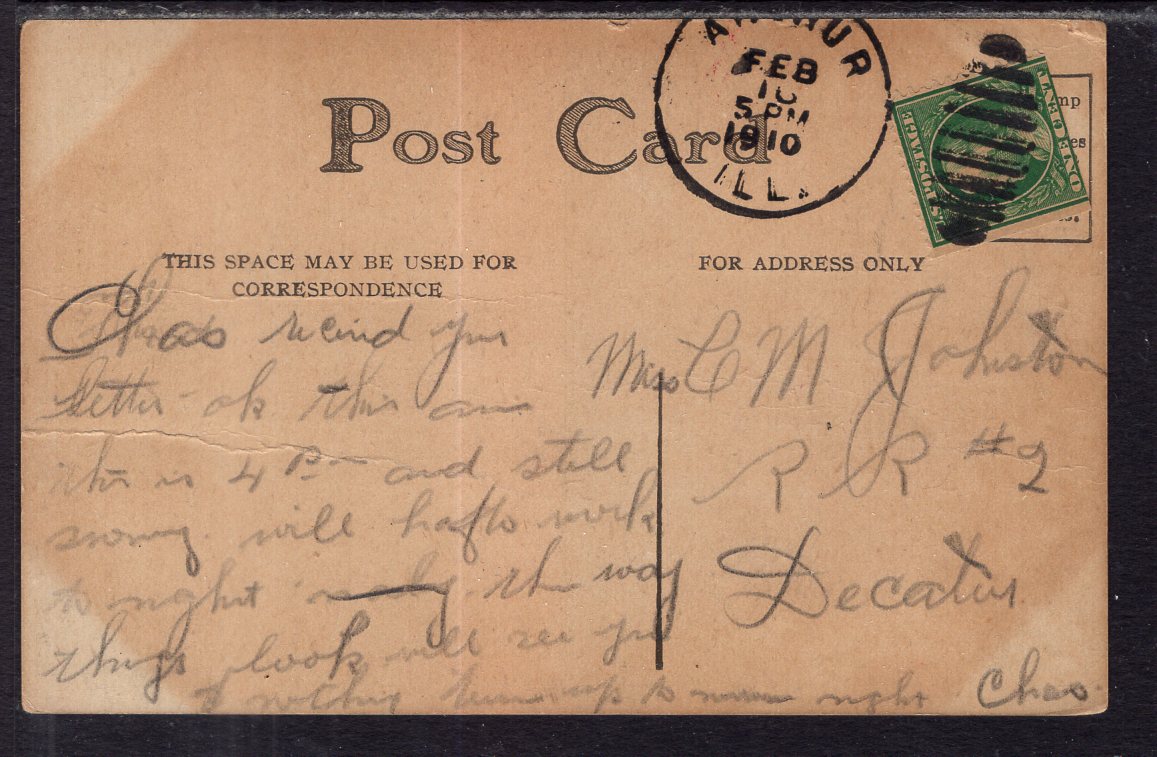 Post Card
ARTHUR
FEB
10
5 PM
1910
ILL.
U.S. POSTAGE
ONE CENT
THIS SPACE MAY BE USED FOR
CORRESPONDENCE
FOR ADDRESS ONLY
Chas recived your
letter ok this am
this is 4 Pm and still
snowing will hafto work
to night the way
things look will see you
if nothing turns up to night
Chas.
Miss C M Johnston
R R #2
Decatur